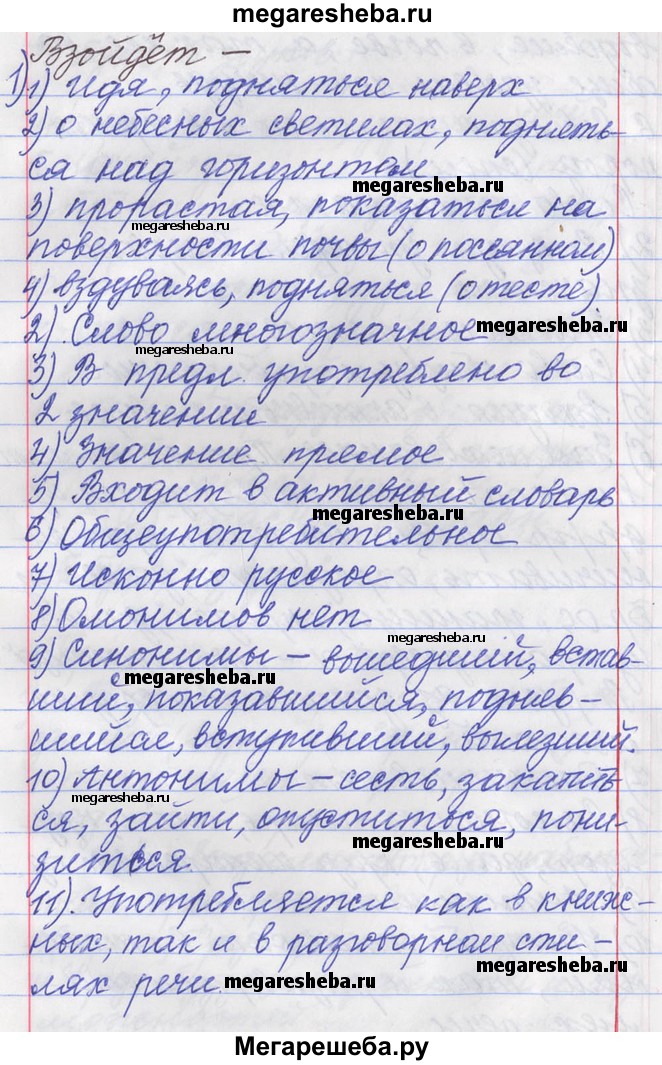 megaresheba.ru
Взойдёт —
1) 1) Идя, подняться наверх
2) о небесных светилах, поднять-
ся над горизонтом
megaresheba.ru
3) прорастая, показаться на
megaresheba.ru
поверхности почвы (о посеянном)
4) вздуваясь, подняться (о тесте)
2). Слово многозначное
megaresheba.ru
megaresheba.ru
3) В предл. употреблено во
2 значении
4) Значение прямое
5) Входит в активный словарь
megaresheba.ru
6) Общеупотребительное
7) Исконно русское
8) Омонимов нет
megaresheba.ru
9) Синонимы – вышедший, встав-
megaresheba.ru
ший, показавшийся, подняв-
шийся, вступивший, вылезший.
10) Антонимы – сесть, закатить-
megaresheba.ru
ся, зайти, опуститься, пони-
megaresheba.ru
зиться.
11). Употребляется как в книж-
ных, так и в разговорном сти-
megaresheba.ru
лях речи.
megaresheba.ru
Мегарешеба.ру